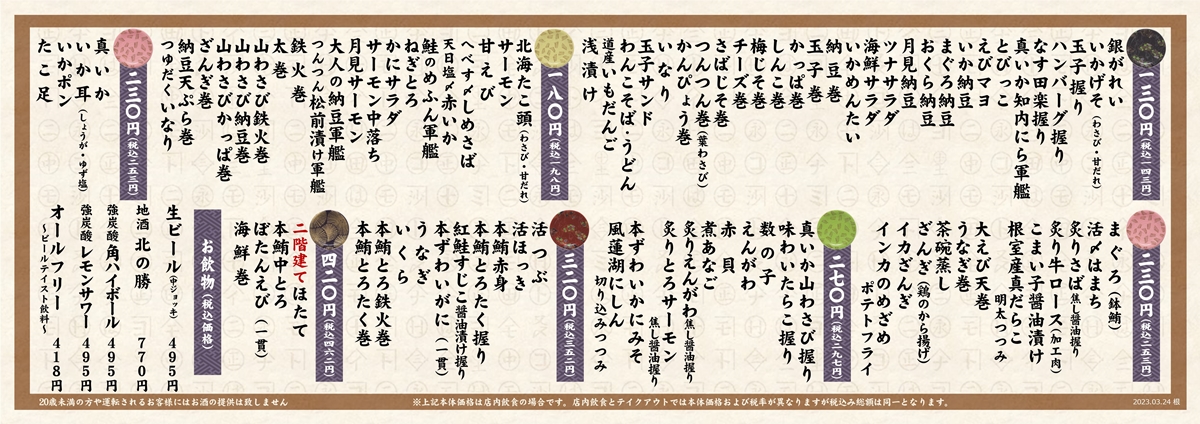 一三〇円(税込一四三円)
銀がれい
いかげそ(わさび・甘だれ)
玉子握り
ハンバーグ握り
なす田楽握り
真いか知内にら軍艦
とびっこ
えびマヨ
いか納豆
まぐろ納豆
おくら納豆
月見納豆
ツナサラダ
海鮮サラダ
いかめんたい
納豆巻
玉子巻
かっぱ巻
しんこ巻
梅じそ巻
チーズ巻
さばじそ巻
つんつん巻(葉わさび)
かんぴょう巻
いなり
玉子サンド
わんこそば・うどん
道産いもだんご
浅漬け
一八〇円(税込一九八円)
北海たこ頭(わさび・甘だれ)
サーモン
甘えび
へべす〆しめさば
天日塩〆赤いか
鮭のめふん軍艦
ねぎとろ
かにサラダ
サーモン中落ち
月見サーモン
大人の納豆軍艦
つんつん松前漬け軍艦
鉄火巻
太巻
山わさび鉄火巻
山わさび納豆巻
山わさびかっぱ巻
ざんぎ巻
納豆天ぷら巻
つゆだくいなり
二三〇円(税込二五三円)
真いか
いか耳(しょうが・ゆず塩)
いかポン
たこ足
二三〇円(税込二五三円)
まぐろ(鉢鮪)
活〆はまち
炙りさば焦し醤油握り
炙り牛ロース(加工肉)
こまい子醤油漬け
根室産真だらこ
明太つつみ
大えび天巻
うなぎ巻
茶碗蒸し
ざんぎ(鶏のから揚げ)
イカざんぎ
インカのめざめ
ポテトフライ
二七〇円(税込二九七円)
真いか山わさび握り
味わいたらこ握り
数の子
えんがわ
赤貝
煮あなご
炙りえんがわ焦し醤油握り
炙りとろサーモン
焦し醤油握り
本ずわいかにみそ
風蓮湖にしん
切り込みつつみ
三二〇円(税込三五二円)
活つぶ
活ほっき
本鮪赤身
本鮪とろたく握り
紅鮭すじこ醤油漬け握り
本ずわいがに(一貫)
うなぎ
いくら
本鮪とろ鉄火巻
本鮪とろたく巻
四二〇円(税込四六二円)
二階建てほたて
本鮪中とろ
ぼたんえび(一貫)
海鮮巻
お飲物(税込価格)
生ビール(中ジョッキ) 495円
地酒 北の勝 770円
強炭酸 角ハイボール 495円
強炭酸 レモンサワー 495円
オールフリー 418円
〜ビールテイスト飲料〜
20歳未満の方や運転されるお客様にはお酒の提供は致しません
※上記本体価格は店内飲食の場合です。店内飲食とテイクアウトでは本体価格および税率が異なりますが税込み総額は同一となります。
2023.03.24 根